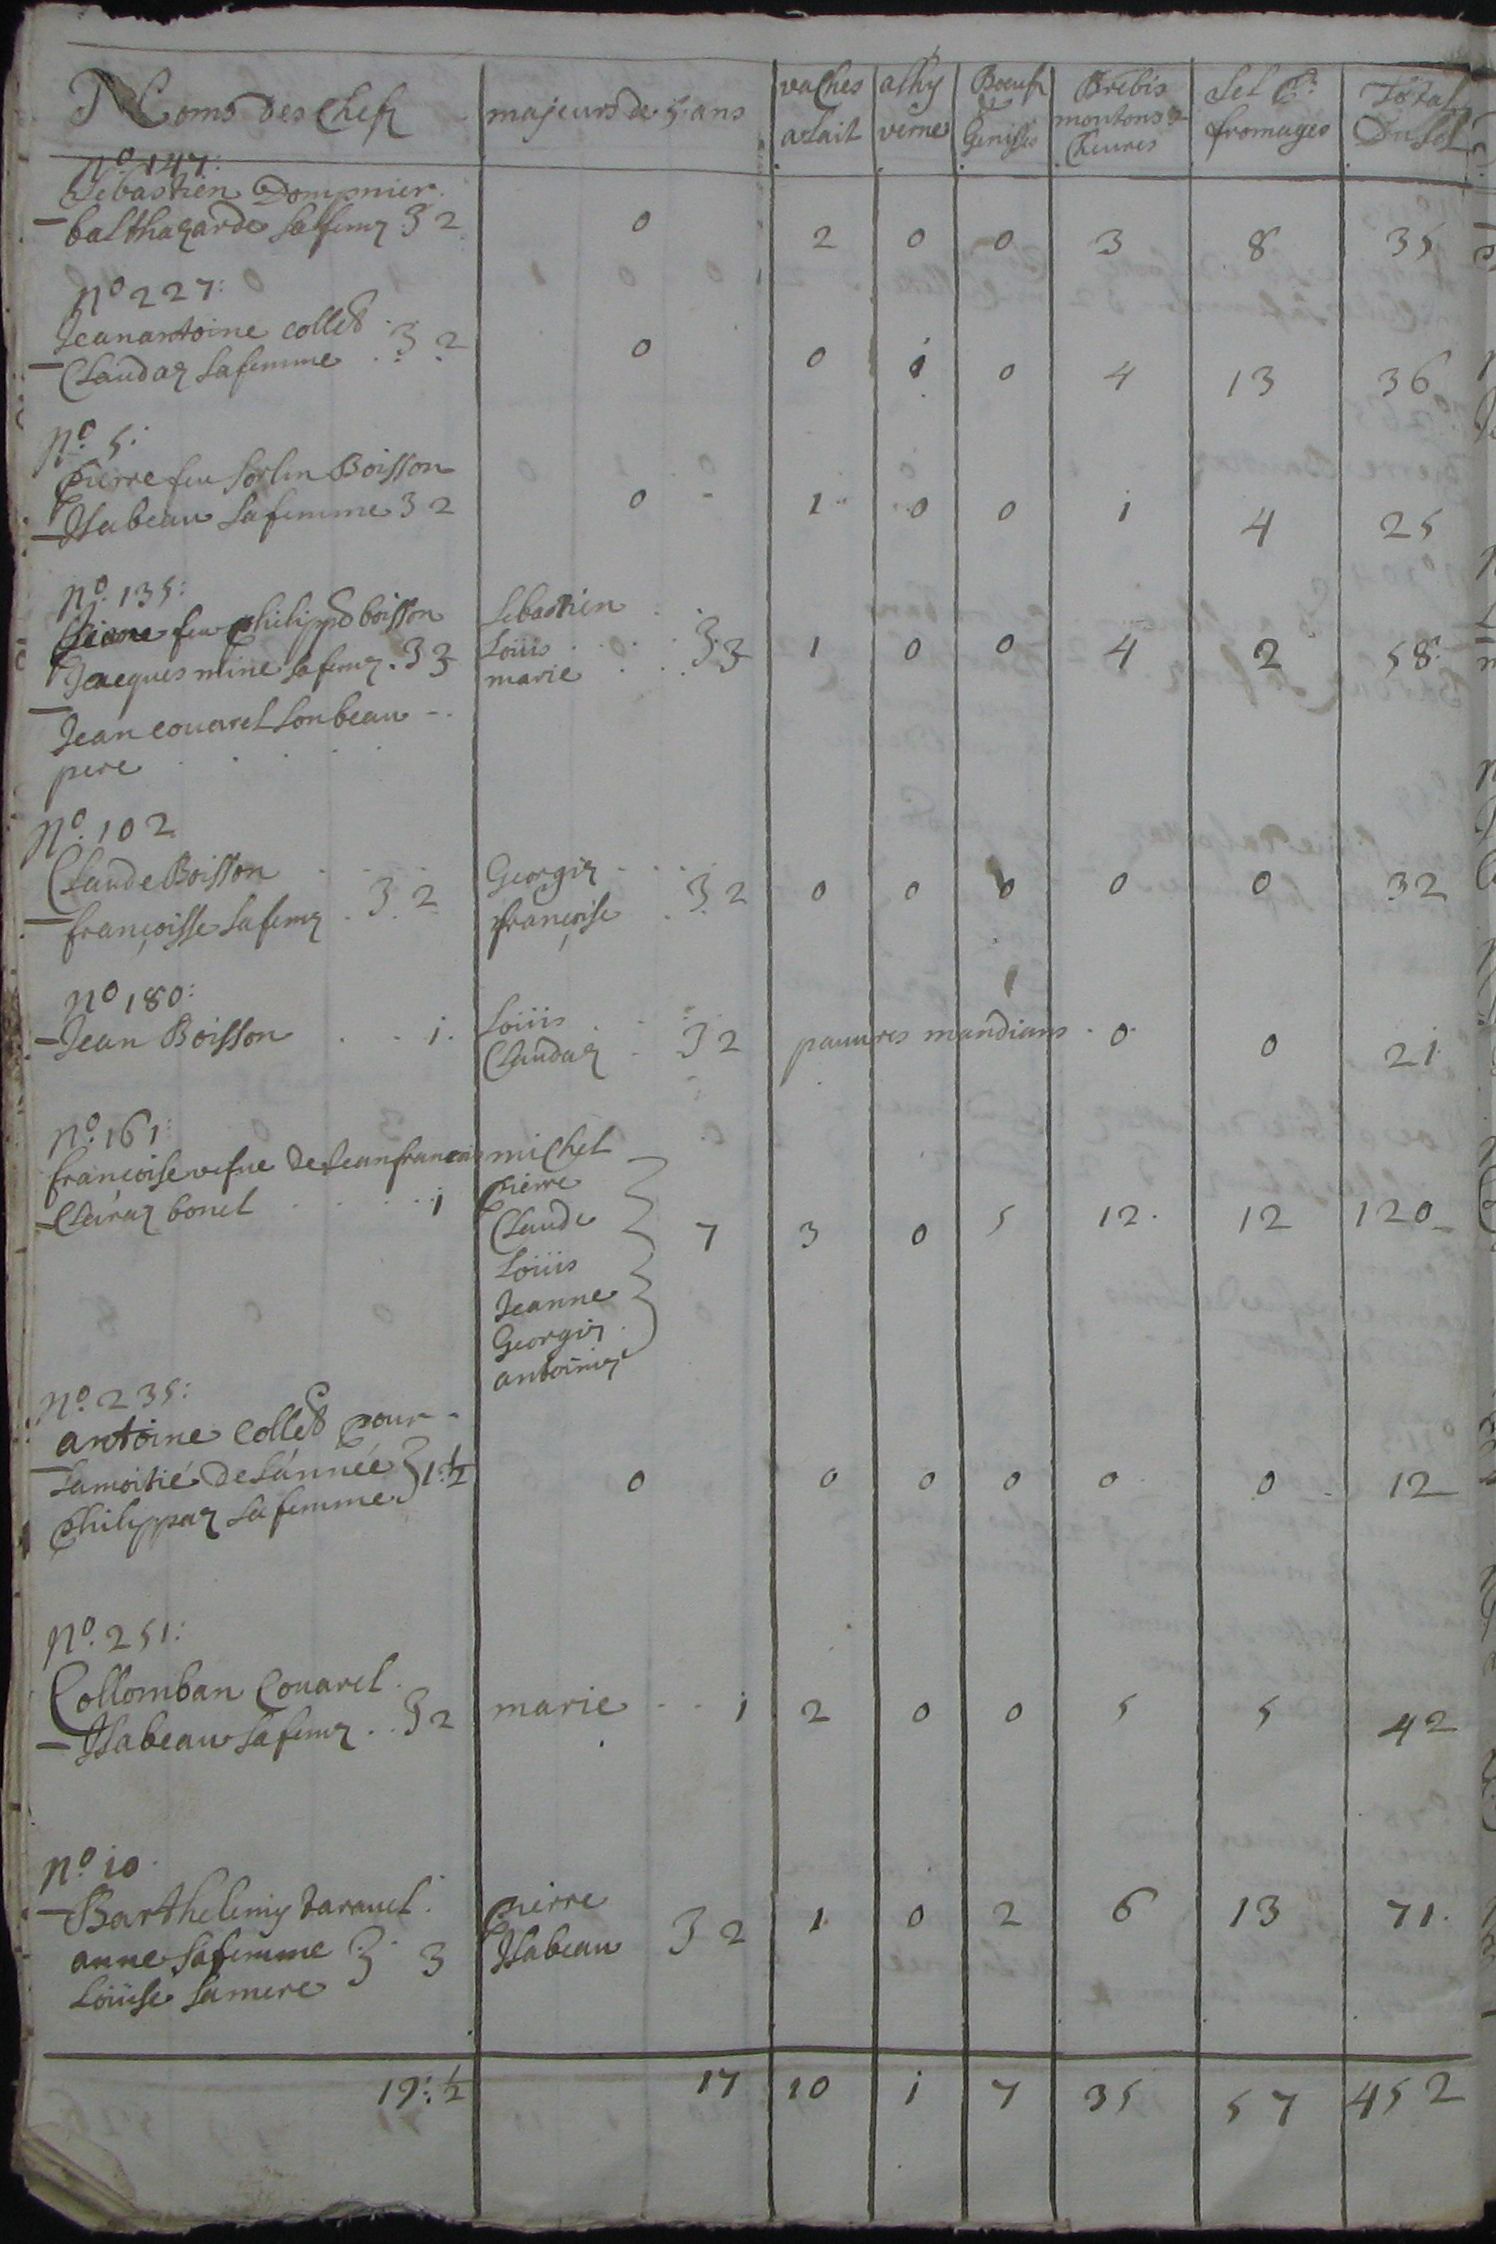 Noms des Chefz majeurs de 5 ans vaches alait athÿ verne Boeufz & Genisses Brebis moutons & Cheures Sel Pr fromages Total Du Sel
No 147:
Sebastien Dompnier
balthazarde safemz 3 2 0 2 0 0 3 8 35
No 227:
Jeanantoine collet
Claudaz safemme 3 2 0 0 i 0 4 13 36
No 5:
Pierre feu sorlin Boisson
Isabeau safemme 3 2 0 1 0 0 i 4 25
No 135:
feu philippe boisson Sebastien
Jacquesmine safemz 3 3 Loüis 3 3 1 0 0 4 2 58
marie
Jean couarel son beau
pere
No 102
Claude Boisson Georgiz
françoisse safemz 3 2 françoise 3 2 0 0 0 0 0 32
No 180:
Jean Boisson i Loüis
Claudaz 3 2 pauures mandians 0 0 21
No 161:
françoise vefue de Jeanfrancois michel
Claraz bonel i Pierre
Claude 7 3 0 5 12 12 120
Loüis
Jeanne
Georgiz
antoiniz
No 235:
antoine Collet pour
Lamoitié de L'année 1 1/2 0 0 0 0 0 0 12
Philippaz safemme
No 251:
Collomban Couarel
Isabeau safemz 3 2 marie i 2 0 0 5 5 42
No 10
Barthelemy darauel Pierre
anne safemme 3 3 Isabeau 3 2 1 0 2 6 13 71
Loüise samere
19: 1/2 17 10 i 7 35 57 452